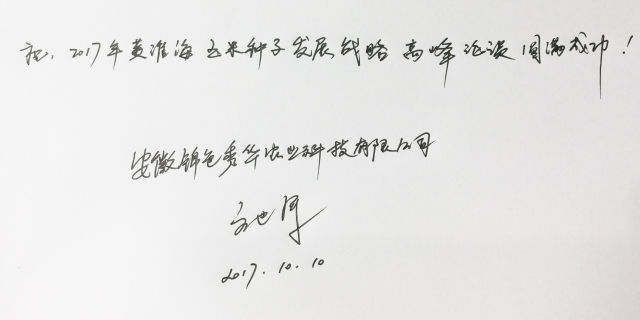 祝:2017年黄淮海玉米种子发展战略高峰论谈圆满成功!
安徽锦色秀华农业科技有限公司
2017.10.10